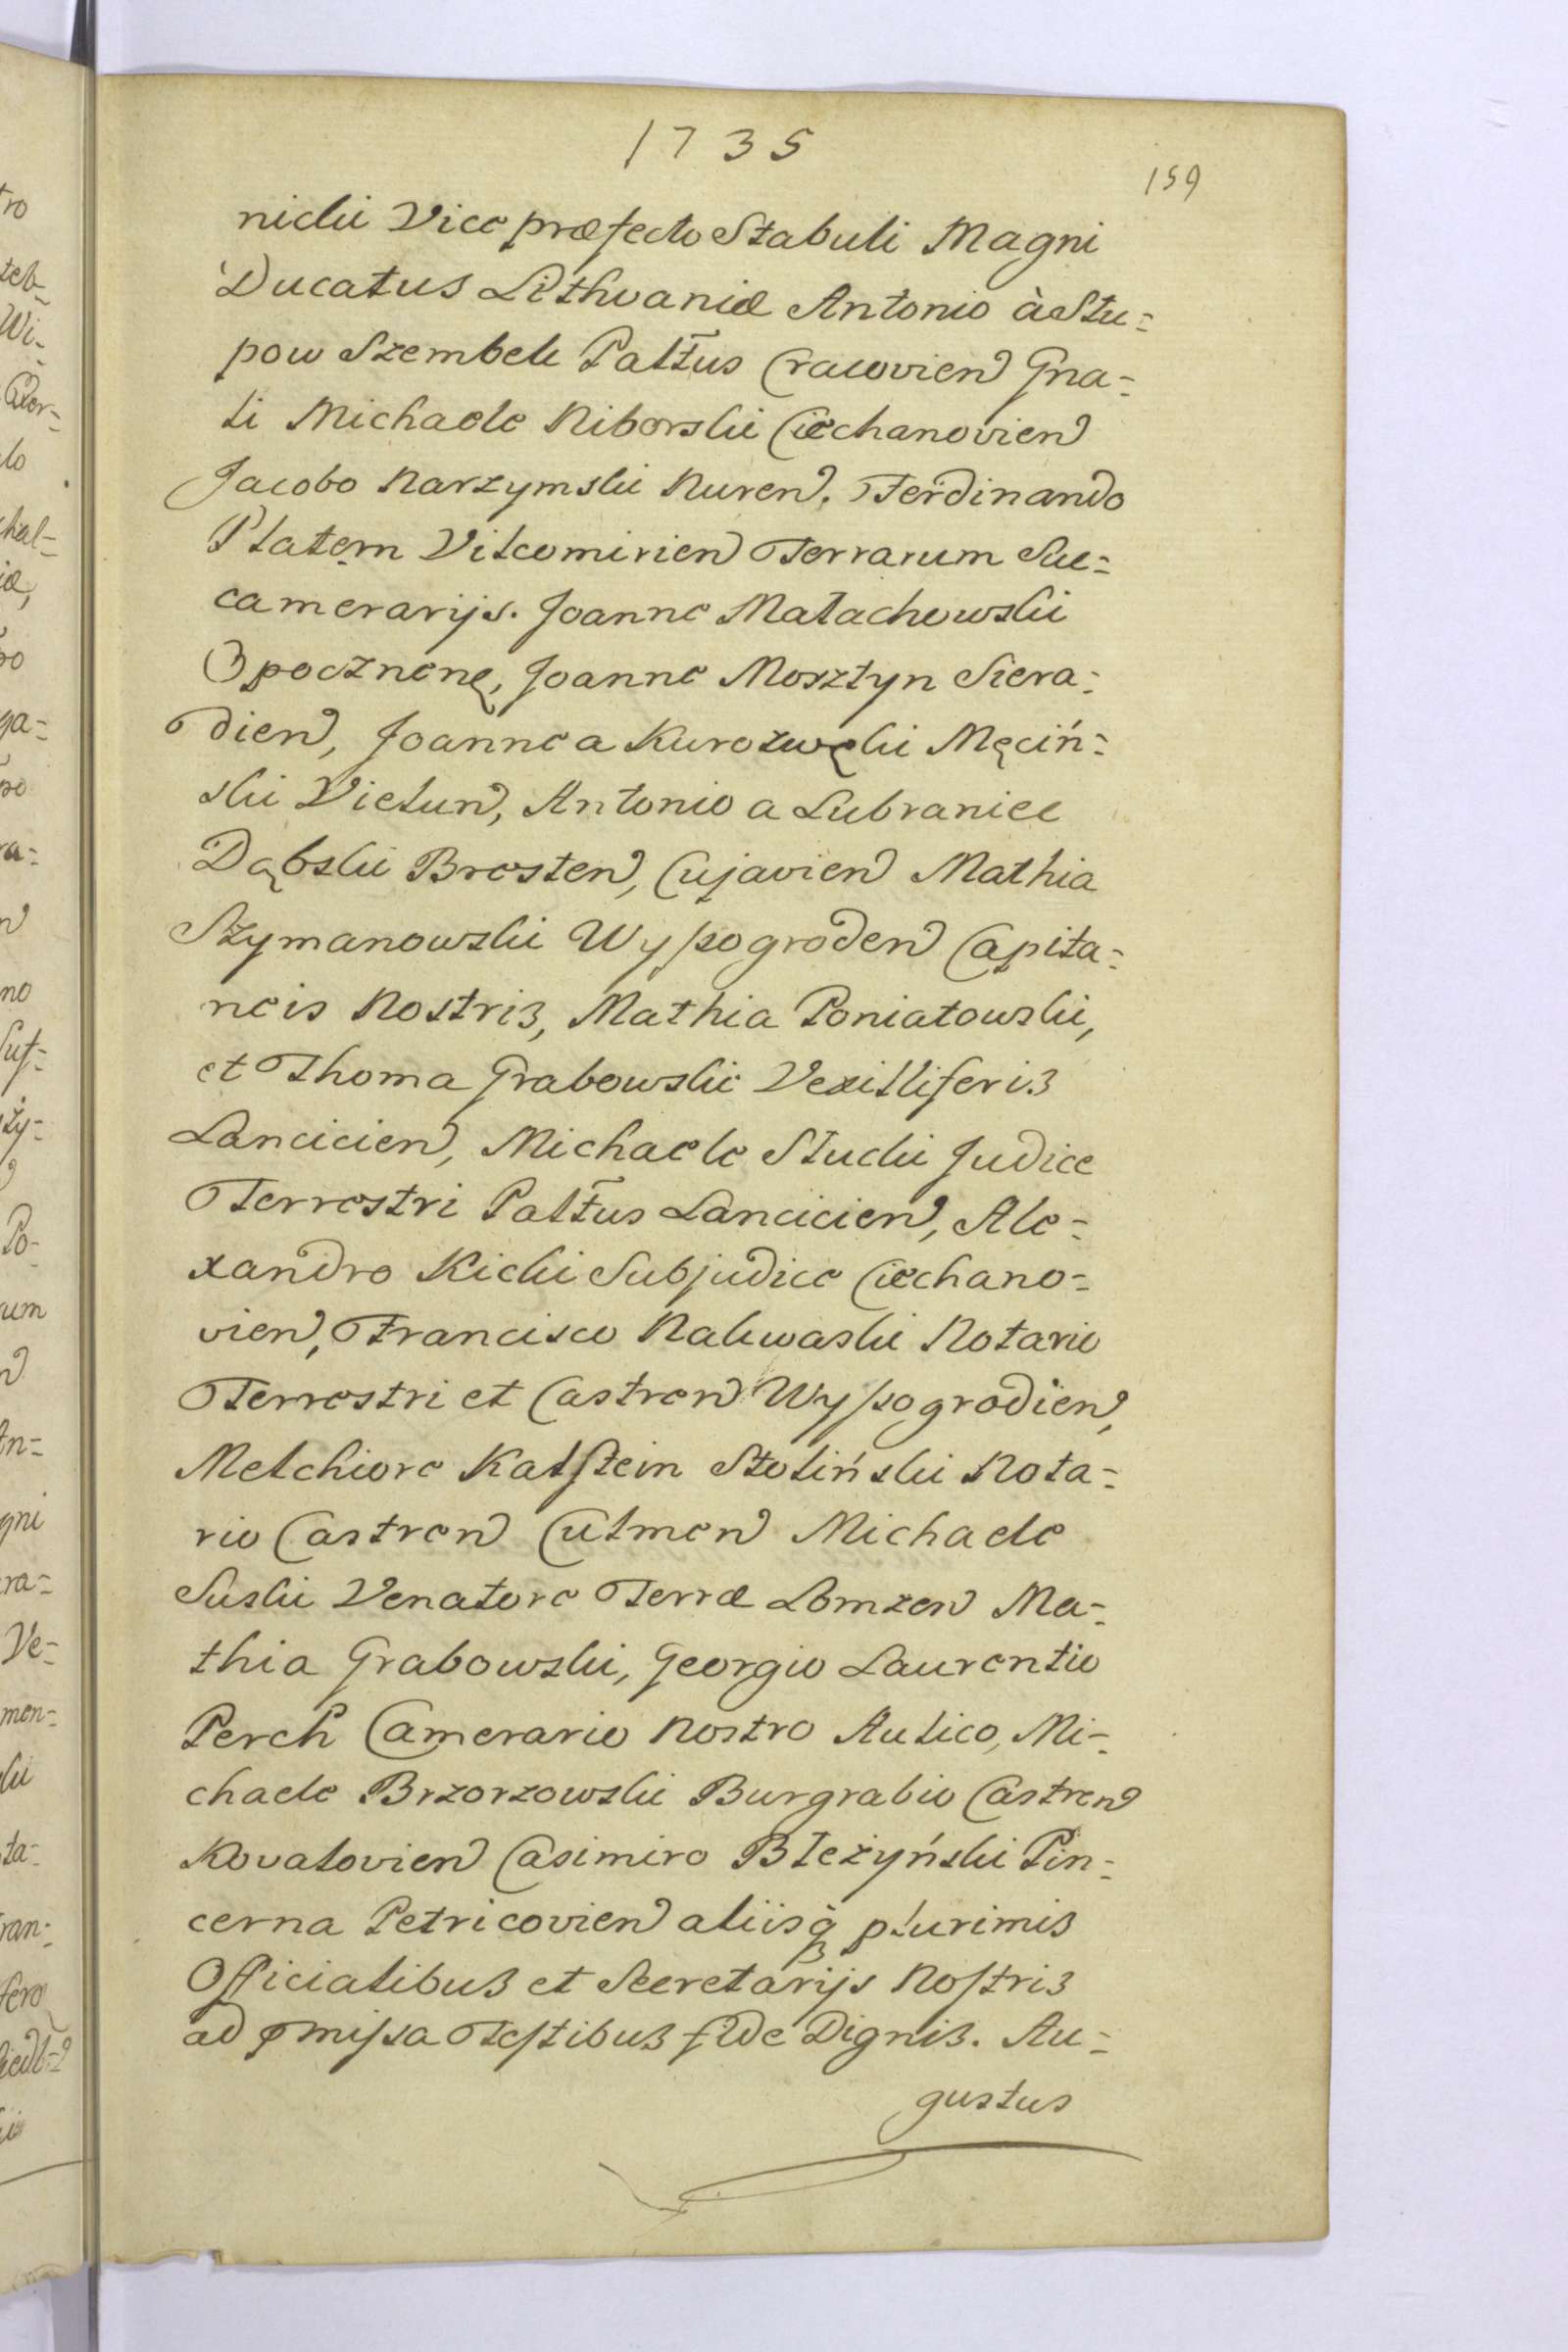 1735
159
nicki Vice præfecto Stabuli Magni
Ducatus Lithvaniæ Antonio à Stu=
pow Szembek Paltus Cracovien Gna=
li Michaele Niborski Ciechanovien
Jacobo Narzymski Nuren. Ferdinando
Platem Vilcomirien Terrarum Suc=
camerarijs. Joanne Małachowski
Opocznen, Joanne Morsztyn Siera=
dien, Joanne a Kurozwęki Męciń=
ski Vielun, Antonio a Lubraniec
Dąbski Bresten, Cujavien Mathia
Szymanowski Wyssogroden Capita=
neis Nostris, Mathia Poniatowski,
et Thoma Grabowski Vexilliferis
Lancicien, Michaele Stucki Judice
Terrestri Paltus Lancicien, Ale=
xandro Kicki Subjudice Ciechano=
vien, Francisco Nakwaski Notario
Terrestri et Castren Wyssogrodien,
Melchiore Kalstein Stoliński Nota=
rio Castren Culmen Michaele
Suski Venatore Terræ Lomzen Ma=
thia Grabowski, Georgio Laurentio
Perch Camerario Nostro Aulico, Mi=
chaele Brzorzowski Burgrabio Castren
Kovalovien Casimiro Błeżyński Pin=
cerna Petricovien aliisq₃ plurimis
Officialibus et Secretarijs Nostris
ad pmissa Testibus fide Dignis. Au=
gustus
ro
teb
Wi=
lo
hal=
ga=
no
Suf=
ży=
Po=
rum
In=
gni
ra=
Ve=
men=
ta=
ran=